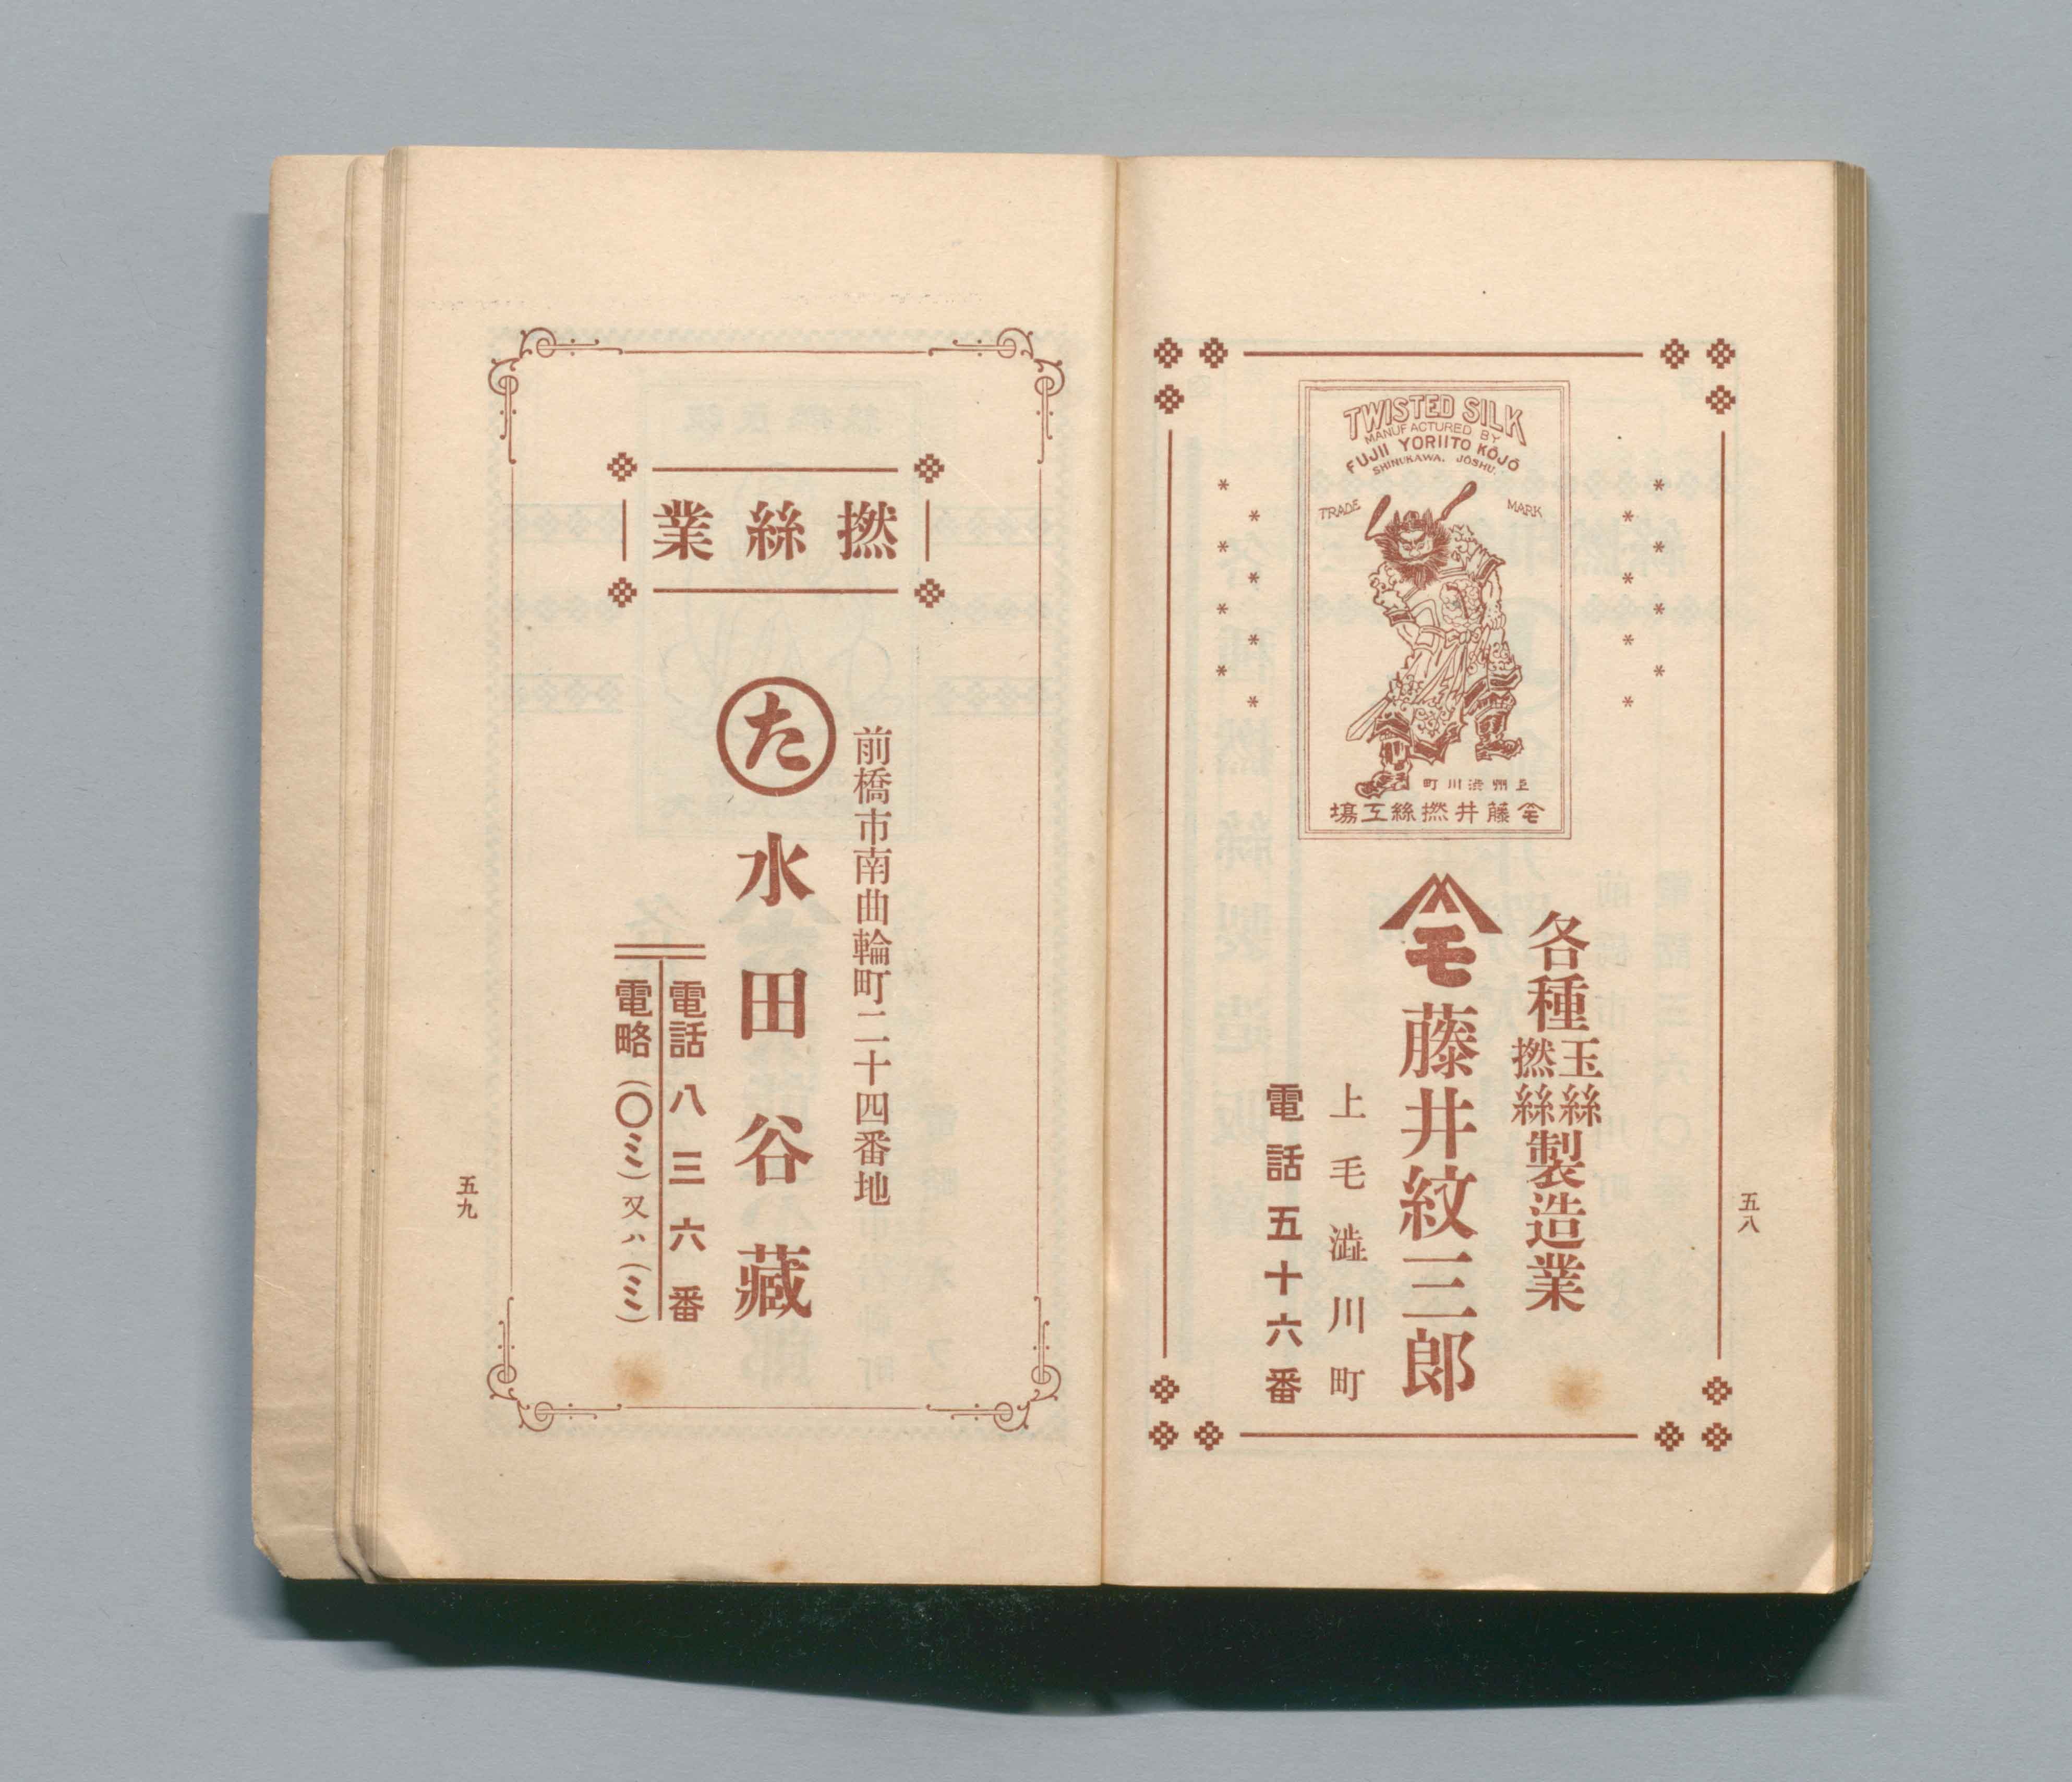 五八
TWISTED SILK
MANUFACTURED BY
FUJII YORIITO KŌJŌ
SHINUKAWA. JŌSHU.
TRADE MARK
上州渋川町
モ藤井撚絲工場
各種玉絲撚絲製造業
モ藤井紋三郎
上毛澁川町
電話五十六番
撚絲業
前橋市南曲輪町二十四番地
た水田谷藏
電話八三六番
電略(〇ミ)又ハ(ミ)
五九